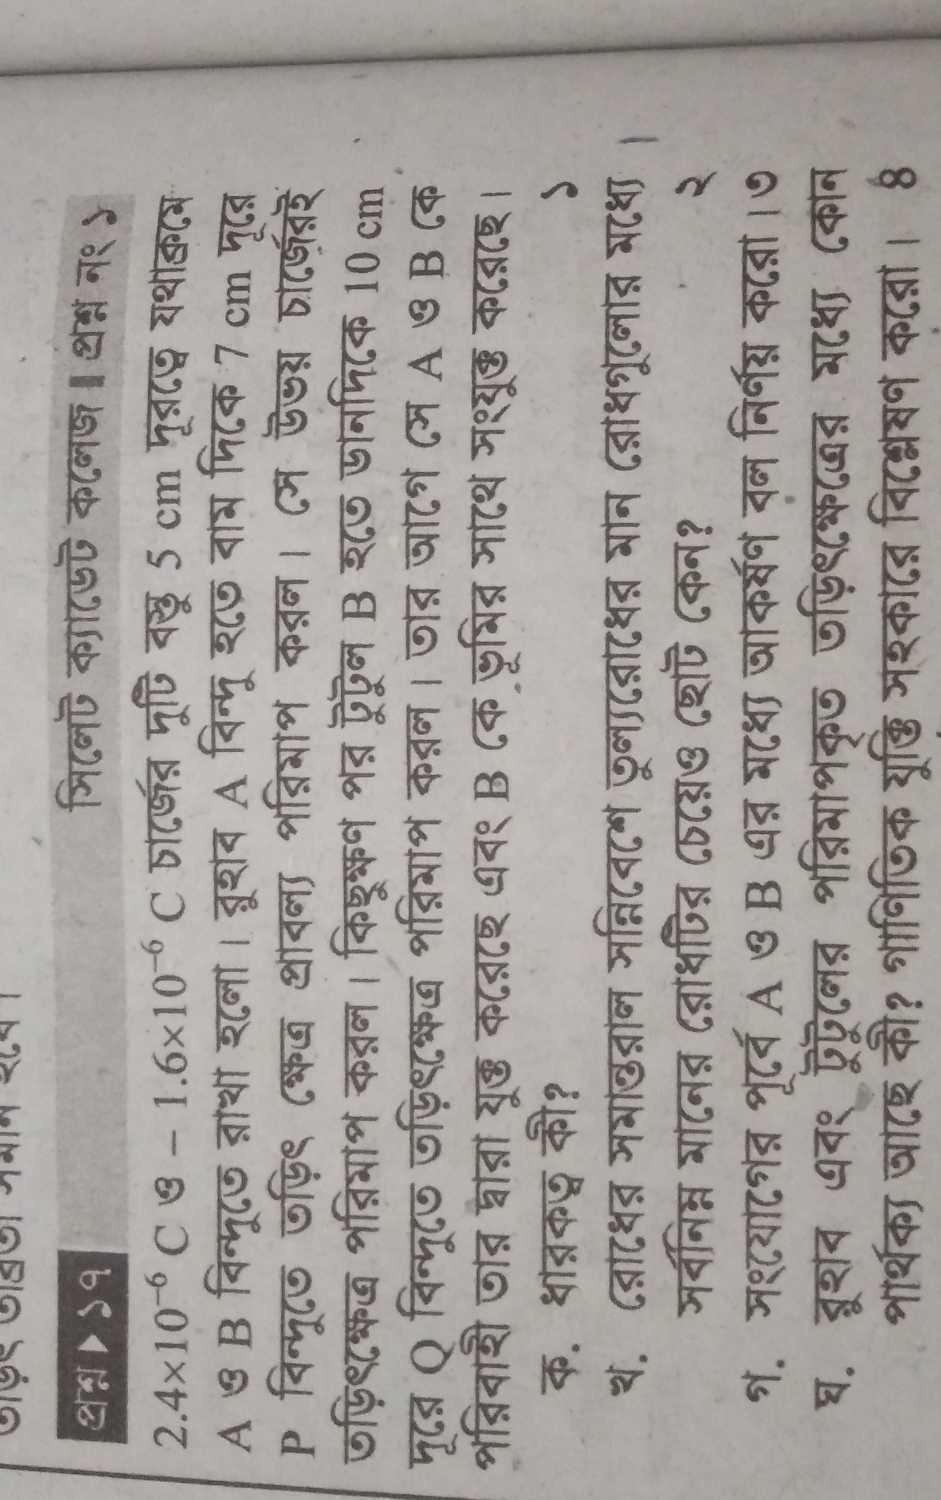 প্রশ্ন ▶ ১৭ সিলেট ক্যাডেট কলেজ ∎ প্রশ্ন নং ১
2.4×10⁻⁶ C ও – 1.6×10⁻⁶ C চার্জের দুটি বস্তু 5 cm দূরত্বে যথাক্রমে
A ও B বিন্দুতে রাখা হলো। রুহাব A বিন্দু হতে বাম দিকে 7 cm দূরে
P বিন্দুতে তড়িৎ ক্ষেত্র প্রাবল্য পরিমাপ করল। সে উভয় চার্জেরই
তড়িৎক্ষেত্র পরিমাপ করল। কিছুক্ষণ পর টুটুল B হতে ডানদিকে 10 cm
দূরে Q বিন্দুতে তড়িৎক্ষেত্র পরিমাপ করল। তার আগে সে A ও B কে
পরিবাহী তার দ্বারা যুক্ত করেছে এবং B কে ভূমির সাথে সংযুক্ত করেছে।
ক. ধারকত্ব কী? ১
খ. রোধের সমান্তরাল সন্নিবেশে তুল্যরোধের মান রোধগুলোর মধ্যে
সর্বনিম্ন মানের রোধটির চেয়েও ছোট কেন? ২
গ. সংযোগের পূর্বে A ও B এর মধ্যে আকর্ষণ বল নির্ণয় করো। ৩
ঘ. রুহাব এবং টুটুলের পরিমাপকৃত তড়িৎক্ষেত্রের মধ্যে কোন
পার্থক্য আছে কী? গাণিতিক যুক্তি সহকারে বিশ্লেষণ করো। ৪